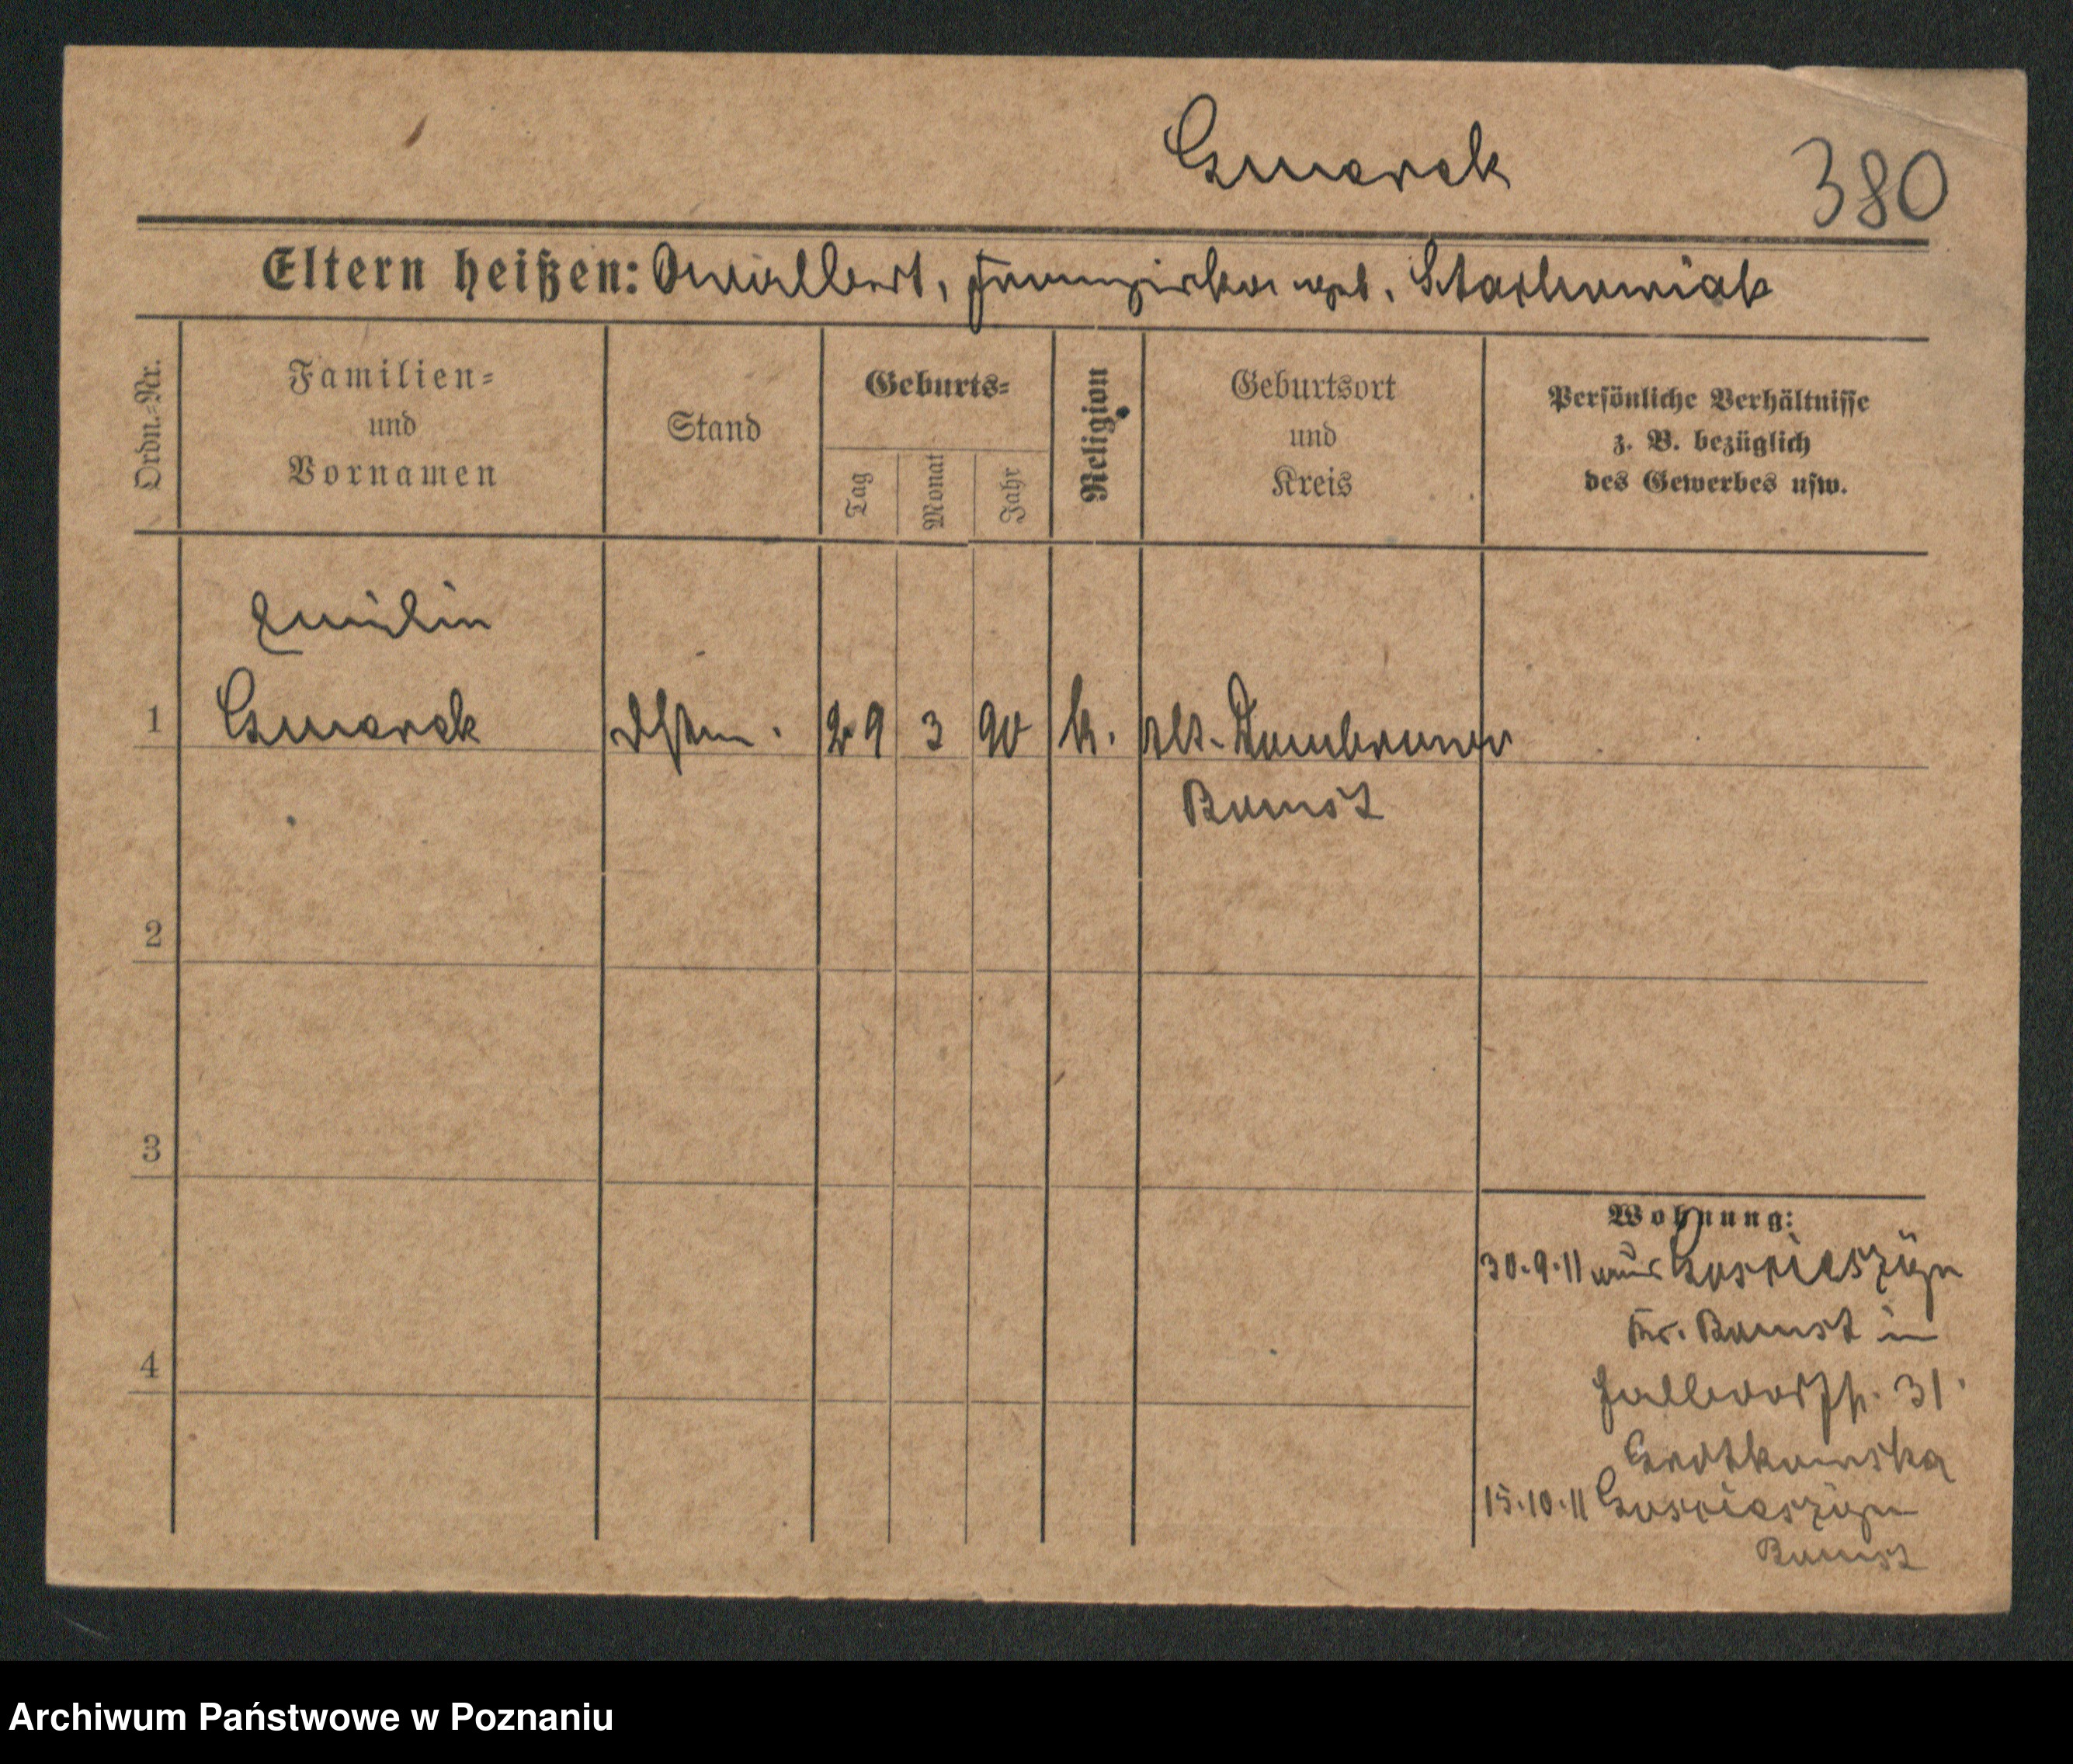 Gmerek
380
Eltern heißen: Adalbert, Franziska geb. Stachowiak
Ordn.=Nr.
Familien=
und
Vornamen
Stand
Geburts=
Tag
Monat
Jahr
Religion
Geburtsort
und
Kreis
Persönliche Verhältnisse
z. B. bezüglich
des Gewerbes usw.
Emilie
1
29 3 90 k. Alt-Dombrowo
Bomst
2
3
4
Wohnung:
30.9.11 aus
Kr. Bomst in
31
15.10.11
Bomst
Archiwum Państwowe w Poznaniu